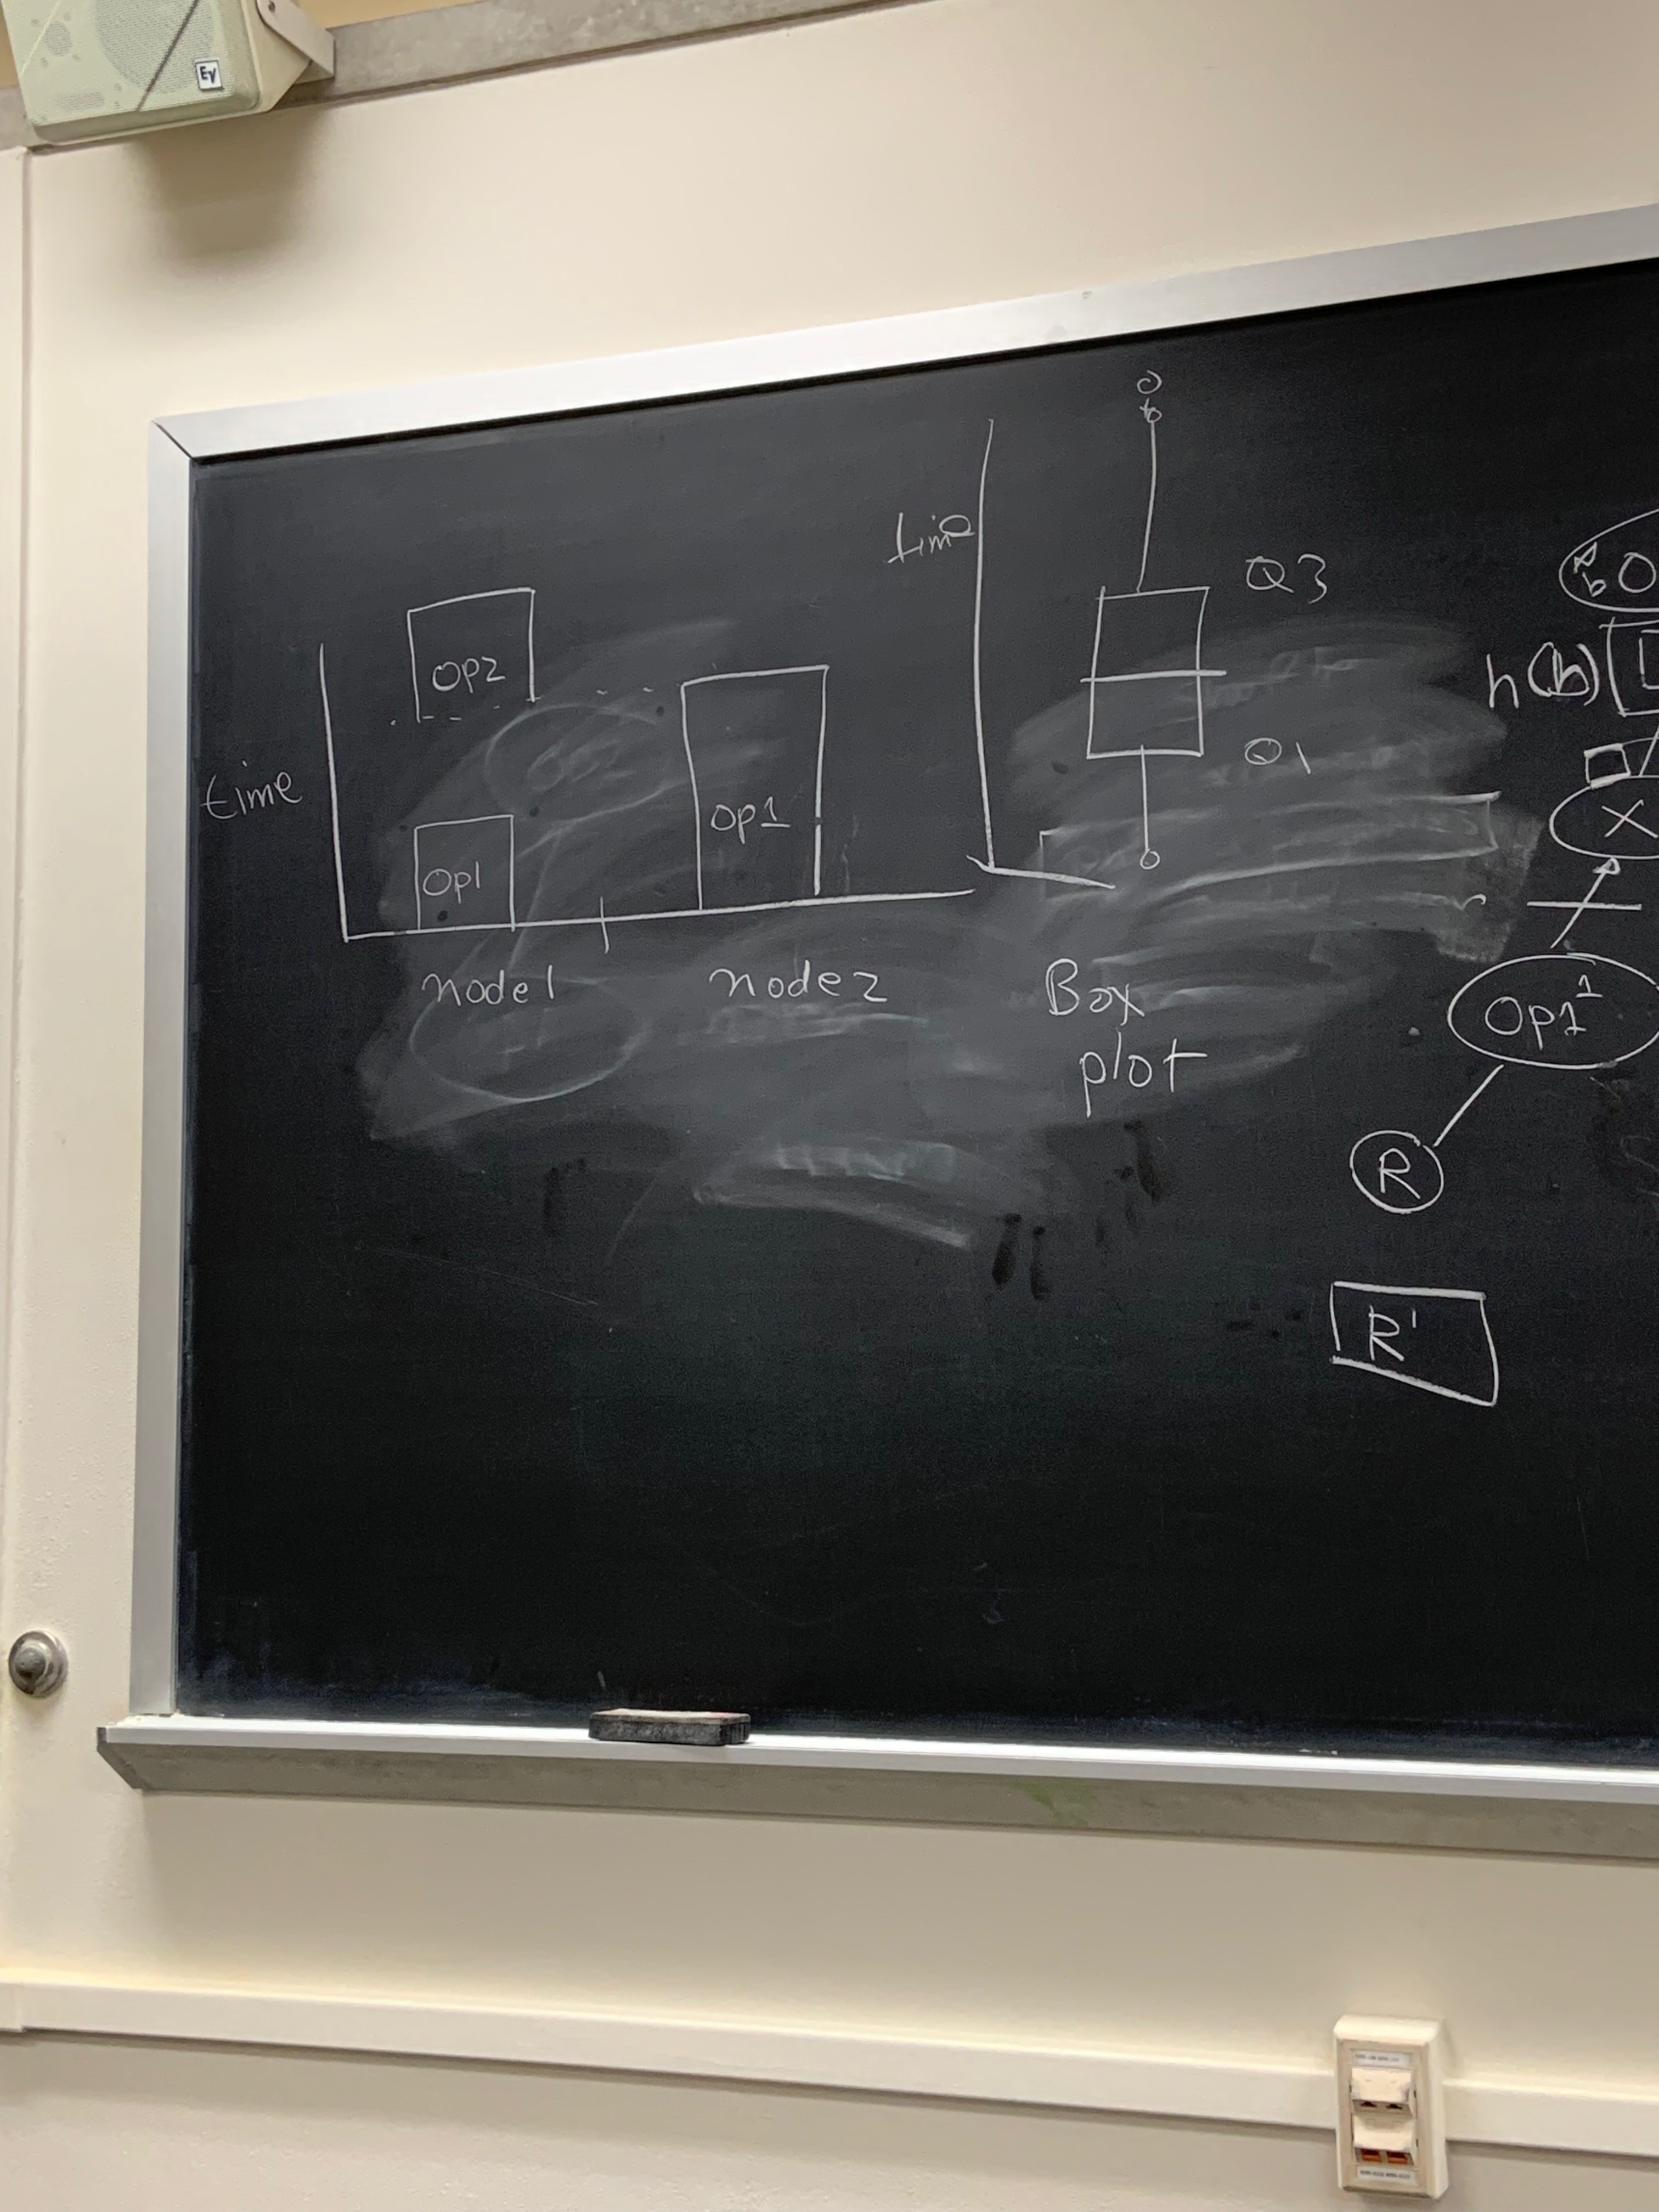 EV
time
Op2
Op1
Op1
node1
node2
time
Q3
Q1
Box
plot
h(b)
X
Op1¹
R
R'